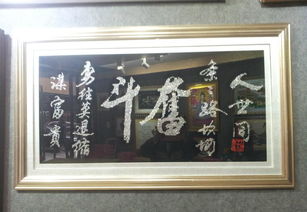 人世间
条路坎坷
奮斗
勇往莫退缩
谋富貴